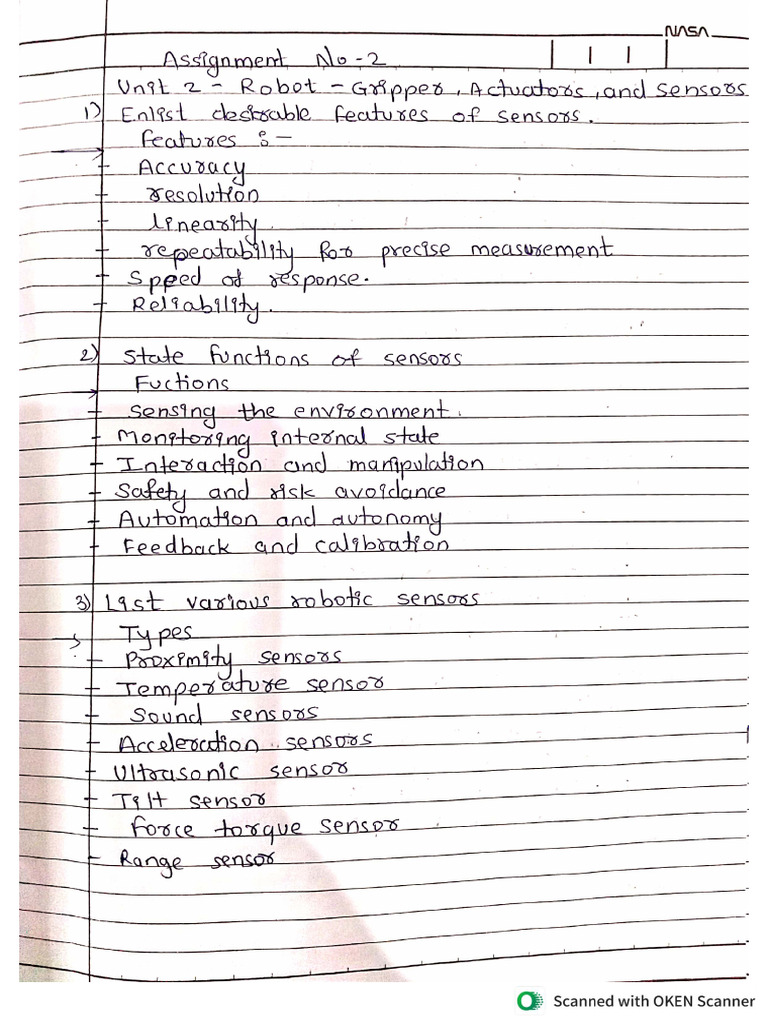 NASA
Assignment No-2
Unit 2 - Robot - Gripper, Actuators, and sensors
1) Enlist desirable features of sensors.
features :-
- Accuracy
- resolution
- linearity
- repeatability for precise measurement
- Speed of response.
- Reliability.
2) State functions of sensors
Fuctions
- Sensing the environment.
- Monitoring internal state
- Interaction and manipulation
- Safety and risk avoidance
- Automation and autonomy
- Feedback and calibration
3) List various robotic sensors
Types
- Proximity sensors
- Temperature sensor
- Sound sensors
- Acceleration sensors
- Ultrasonic sensor
- Tilt sensor
- force torque sensor
- Range sensor
Scanned with OKEN Scanner